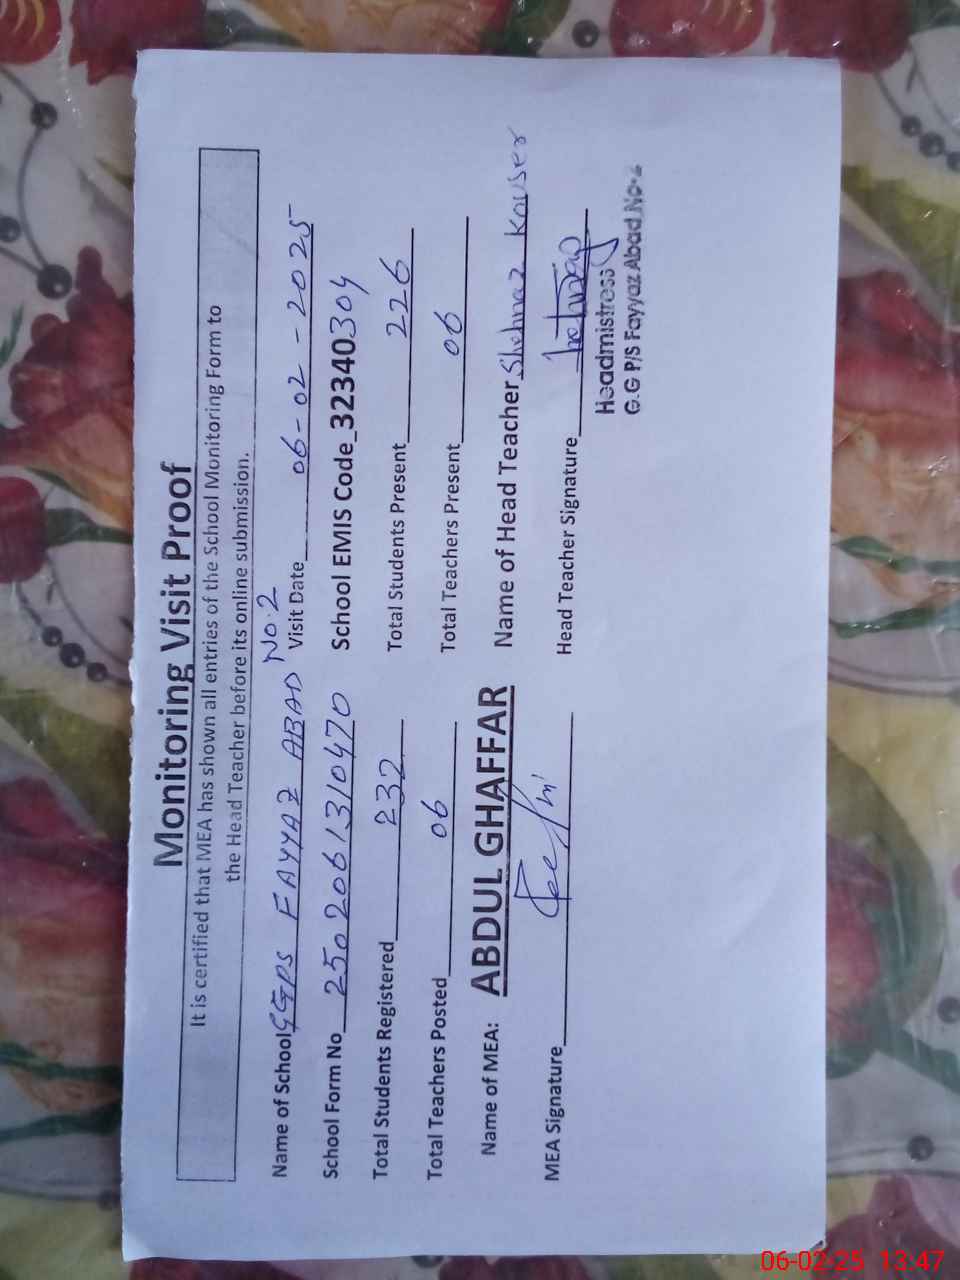 Monitoring Visit Proof
It is certified that MEA has shown all entries of the School Monitoring Form to
the Head Teacher before its online submission.
Name of School GGPS FAYYAZ ABAD NO.2 Visit Date 06-02-2025
School Form No 2502061310470 School EMIS Code_32340304
Total Students Registered 232 Total Students Present 226
Total Teachers Posted 06 Total Teachers Present 06
Name of MEA: ABDUL GHAFFAR Name of Head Teacher Shahnaz Kouser
MEA Signature Head Teacher Signature
Headmistress
G.G P/S Fayyaz Abad No-2
06-02-25 13:47